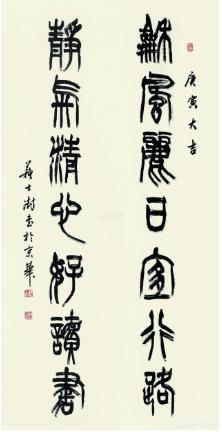 庚寅大吉
龢風麗日宜行路
靜氣精心好讀書
蘇士澍書於京華